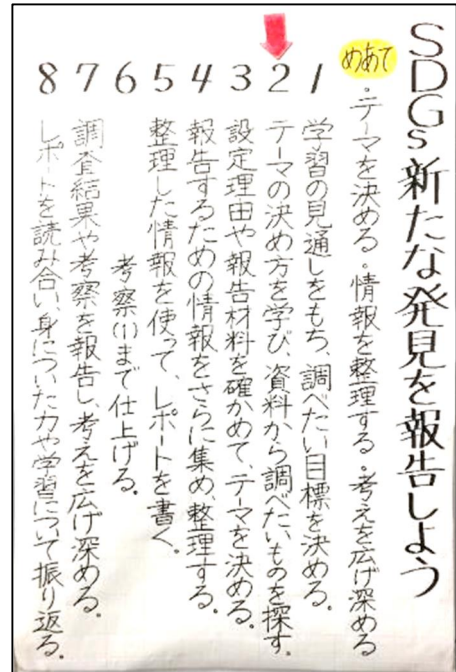 SDGs新たな発見を報告しよう
めあて
・テーマを決める。・情報を整理する。・考えを広げ深める
1 学習の見通しをもち、調べたい目標を決める。
2 テーマの決め方を学び、資料から調べたいものを探す。
3 設定理由や報告材料を確かめて、テーマを決める。
4 報告するための情報をさらに集め、整理する。
5 整理した情報を使って、レポートを書く。
6 考察(1)まで仕上げる。
7 調査結果や考察を報告し、考えを広げ深める。
8 レポートを読み合い、身についた力や学習について振り返る。